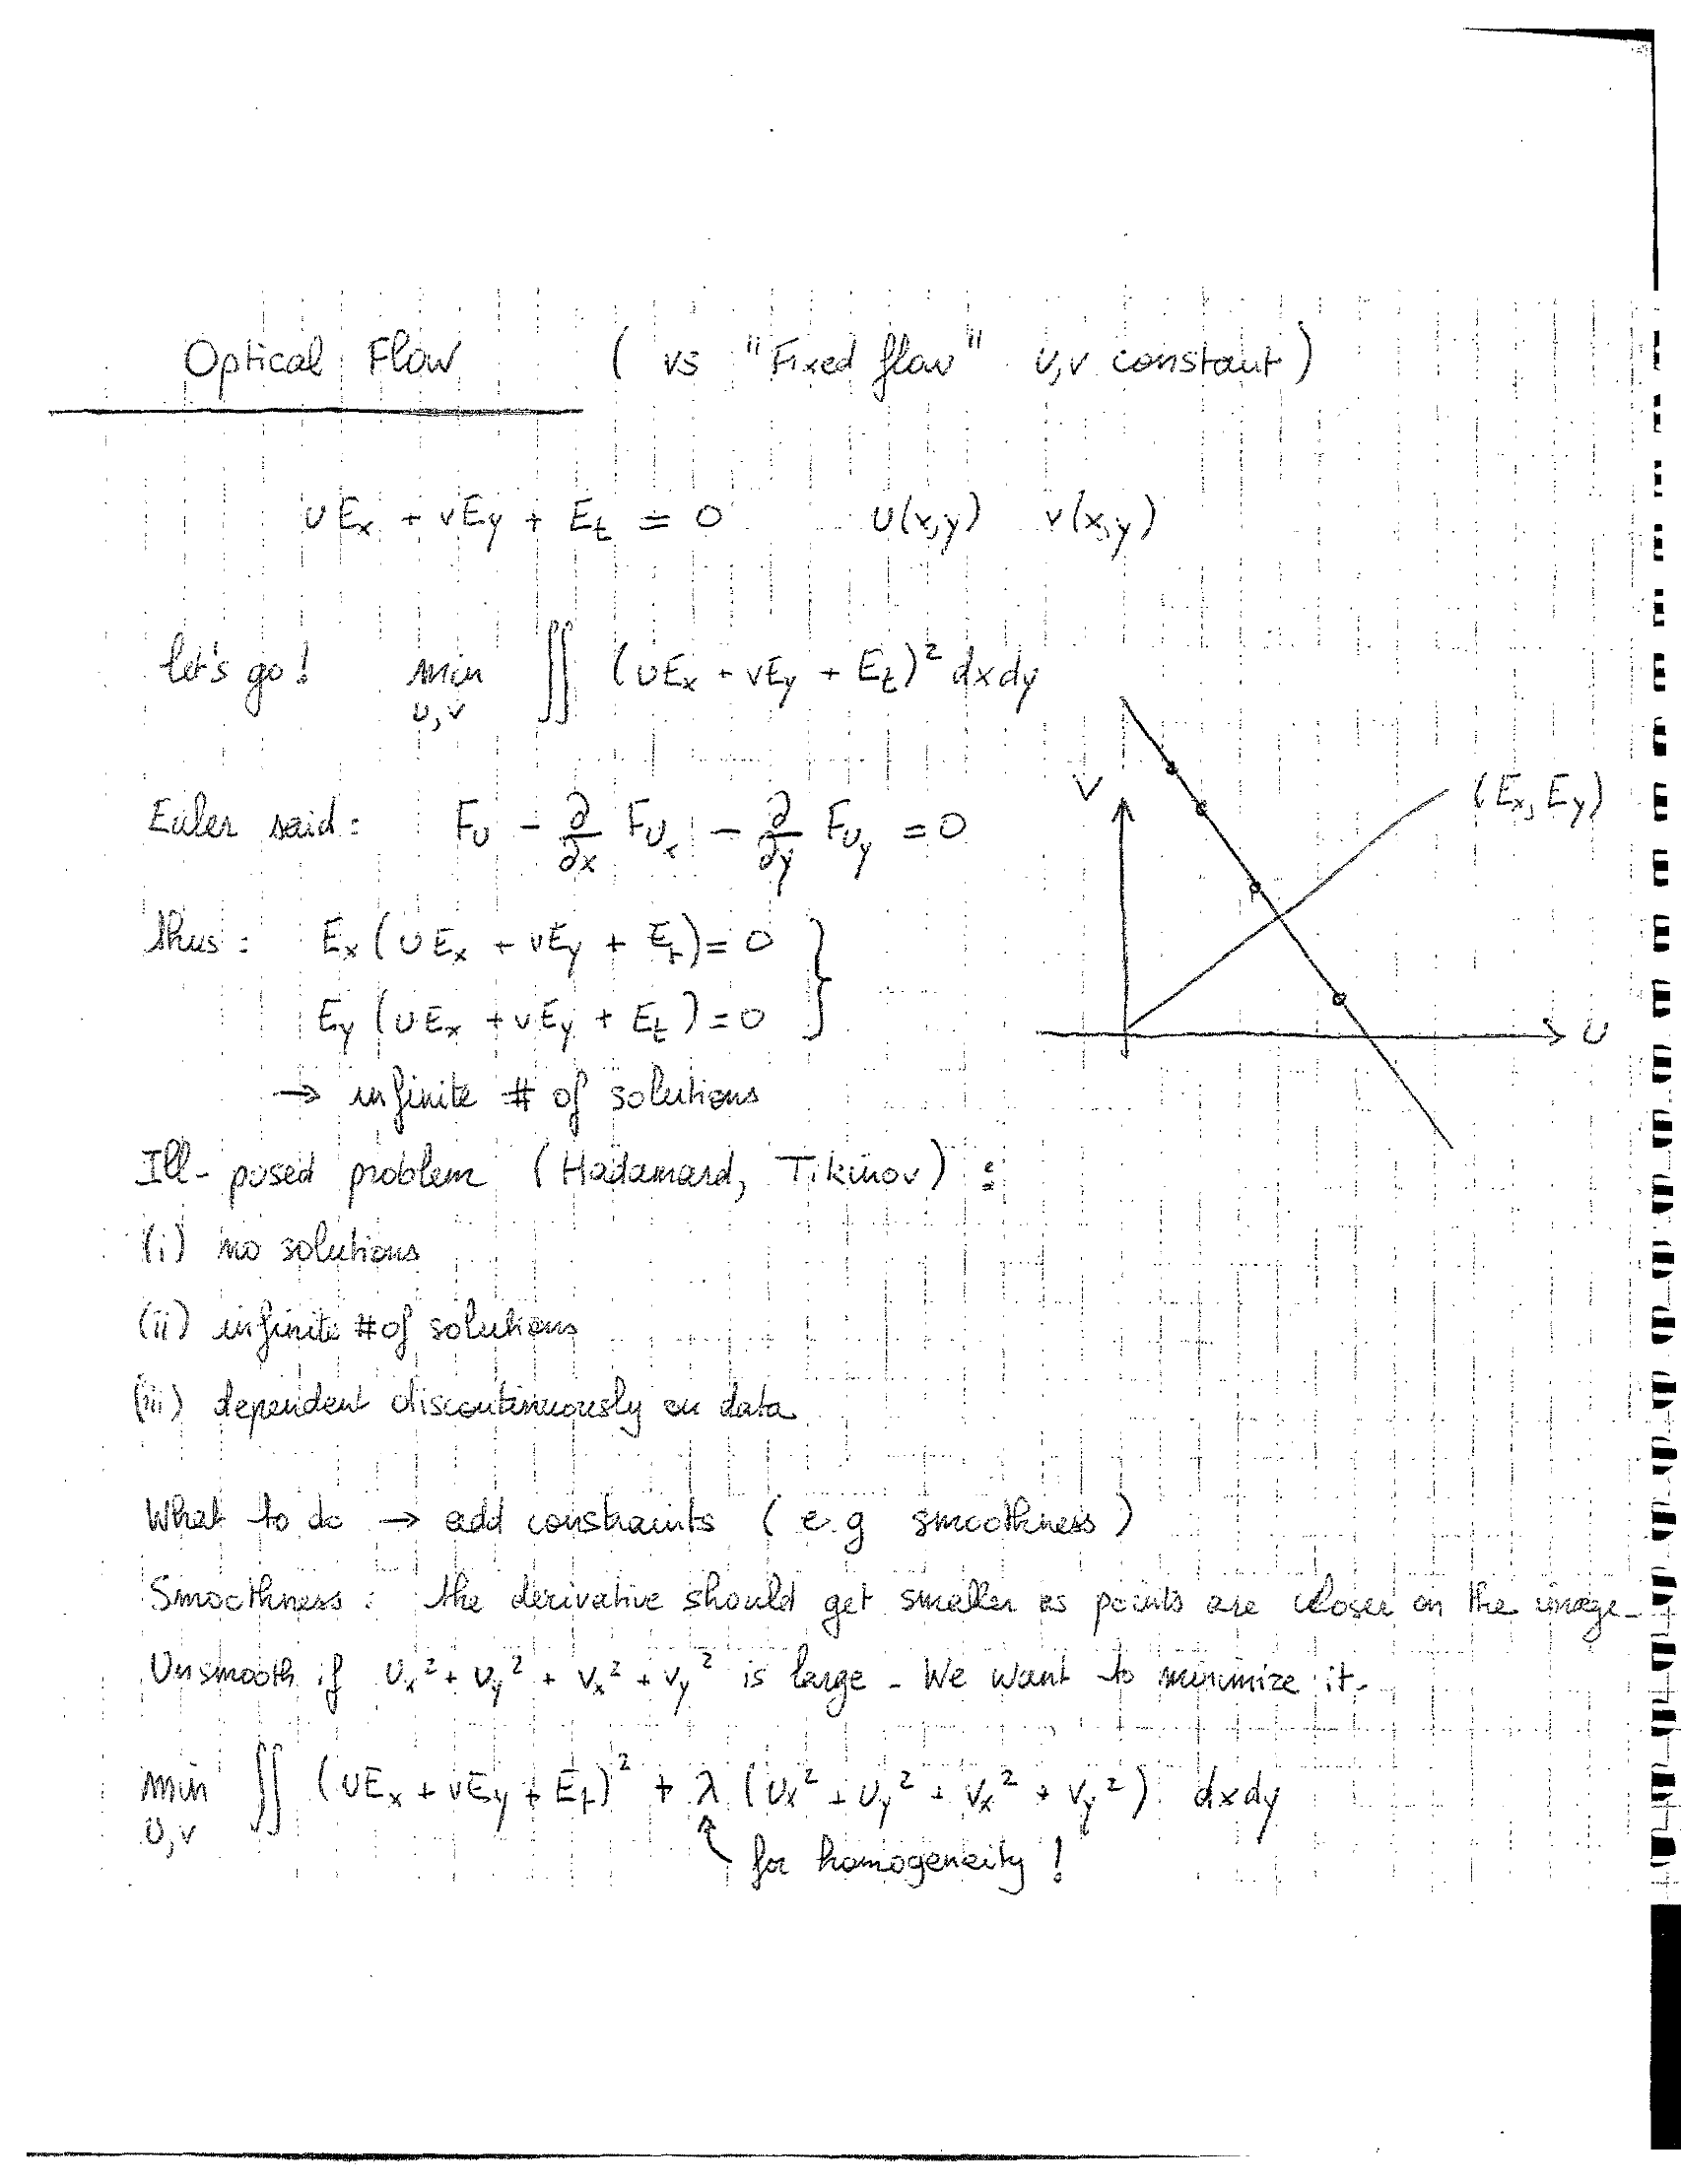 Optical Flow ( vs "Fixed flow" u,v constant )
uEx + vEy + Et = 0 u(x,y) v(x,y)
let's go! min u,v ∬ (uEx + vEy + Et)² dxdy
Euler said: Fu - ∂/∂x Fux - ∂/∂y Fuy = 0
V
(Ex, Ey)
thus: Ex (uEx + vEy + Et) = 0
Ey (uEx + vEy + Et) = 0
U
→ infinite # of solutions
Ill-posed problem (Hadamard, Tikinov) :
(i) no solutions
(ii) infinite # of solutions
(iii) dependent discontinuously on data
What to do → add constraints ( e.g smoothness )
Smoothness : the derivative should get smaller as points are closer on the image -
Unsmooth if ux² + uy² + vx² + vy² is large - We want to minimize it -
min u,v ∬ (uEx + vEy + Et)² + λ (ux² + uy² + vx² + vy²) dxdy
for homogeneity !